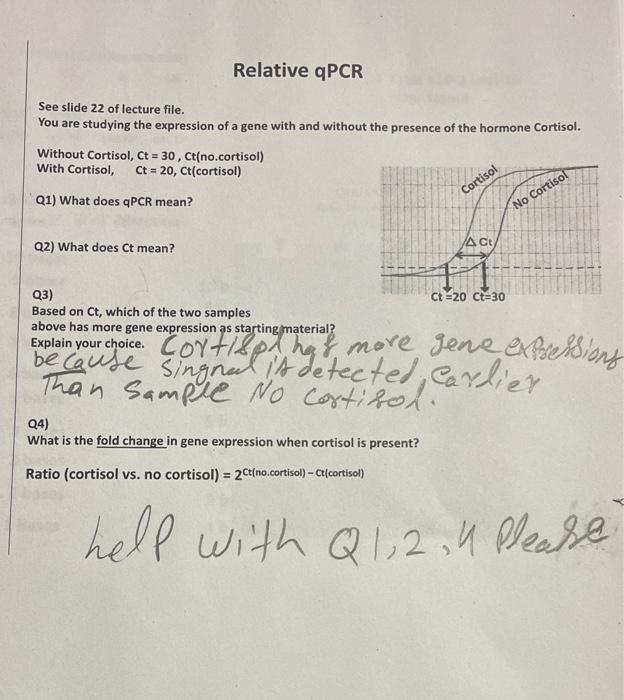 Relative qPCR
See slide 22 of lecture file.
You are studying the expression of a gene with and without the presence of the hormone Cortisol.
Without Cortisol, Ct = 30 , Ct(no.cortisol)
With Cortisol, Ct = 20, Ct(cortisol)
Q1) What does qPCR mean?
Q2) What does Ct mean?
Cortisol
No Cortisol
Δ Ct
Ct =20 Ct=30
Q3)
Based on Ct, which of the two samples
above has more gene expression as starting material?
Explain your choice. Cortisol has more gene expressions
because Singnal is detected Earlier
Than Sample No Cortisol.
Q4)
What is the fold change in gene expression when cortisol is present?
Ratio (cortisol vs. no cortisol) = 2^Ct(no.cortisol) – Ct(cortisol)
help with Q1,2,4 Please